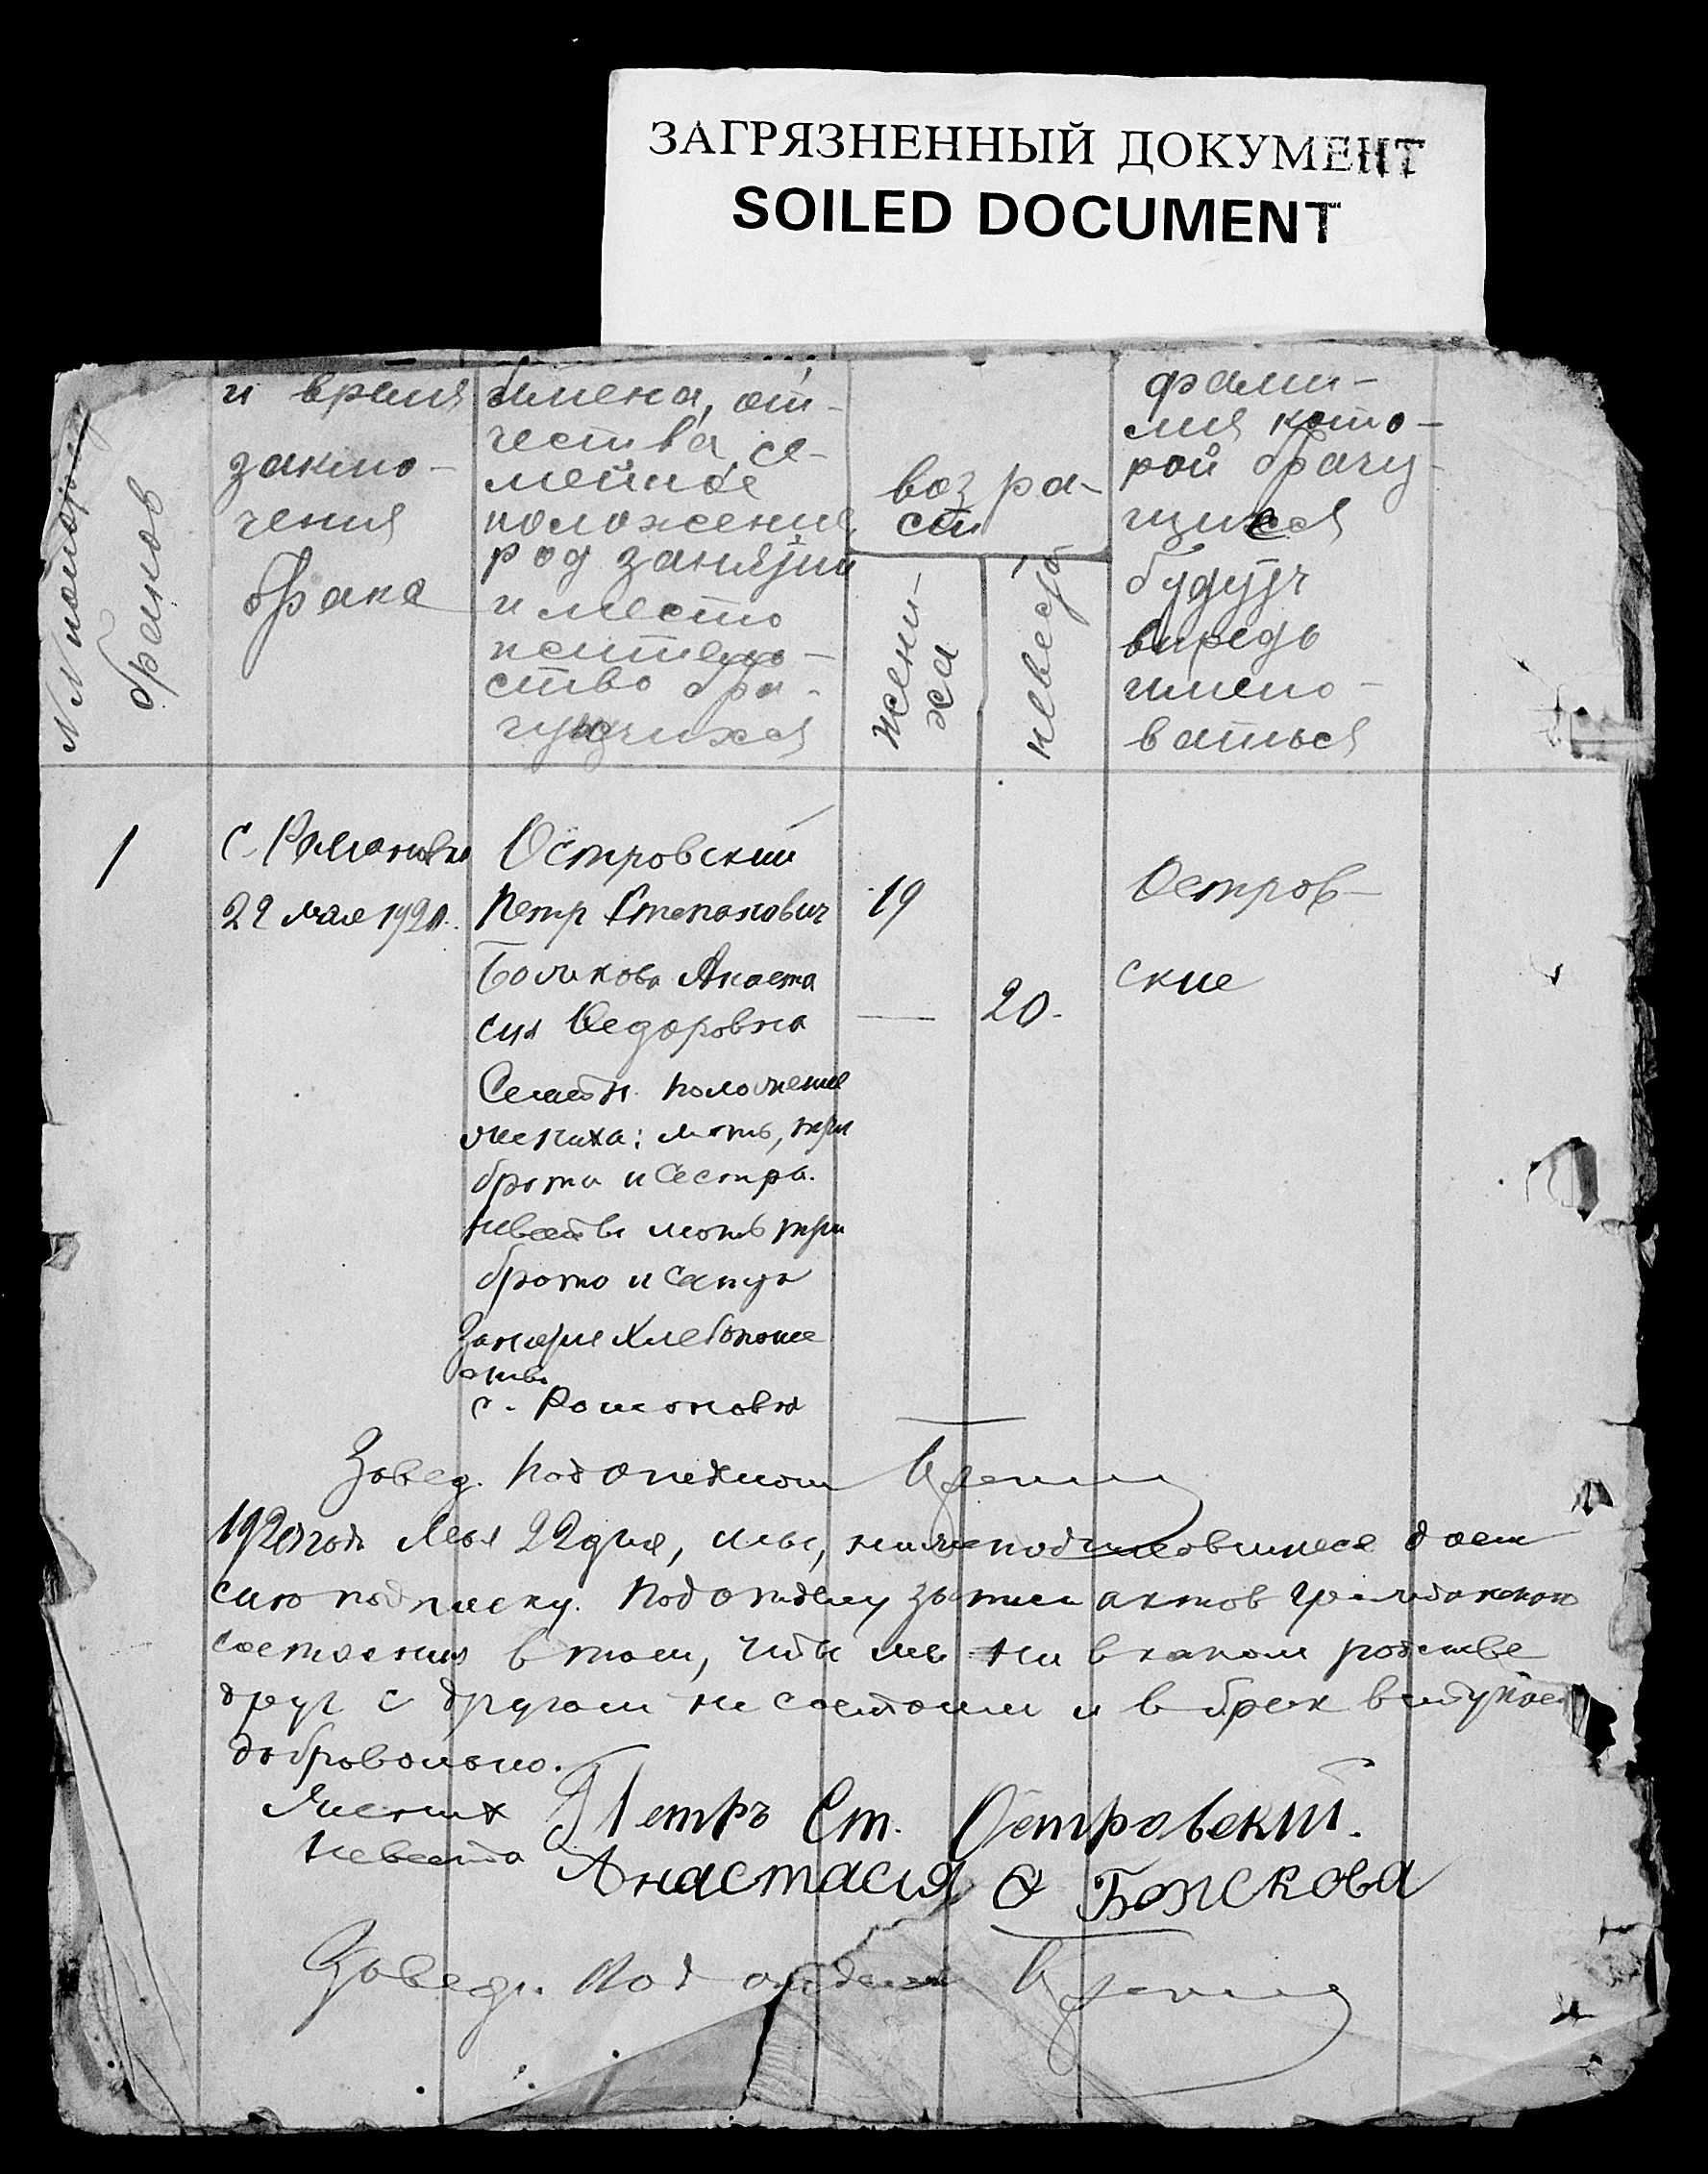 ЗАГРЯЗНЕННЫЙ ДОКУМЕНТ
SOILED DOCUMENT
браков
и время
заклю-
чения
брака
имена, от-
чества, се-
мейное
положение
род занятий
и место
ство бра-
чущихся
возра-
ст
жени-
ха
невесты
фами-
лия кото-
рой брачу-
щиеся
будут
впредь
имено-
ваться
1
с. Романовка
22 мая 1920.
Островский
Петр Степанович
Анаста
сия Федоровна
Семейн. положение
жениха: мать, три
брата и сестра.
невесты мать три
брата и
Занятие Хлебопаше
ство
с. Романовка
19
—
20.
Остров-
ские
Завед. подотделом
1920 года Мая 22 дня, мы, нижеподписавшиеся даем
сию подписку. Подотделу записи актов гражданского
состояния в том, что мы ни в каком родстве
друг с другом не состоим и в брак вступаем
добровольно.
Жених Петръ Ст. Островский.
Невеста Анастасия Ѳ
Завед. Подотделом